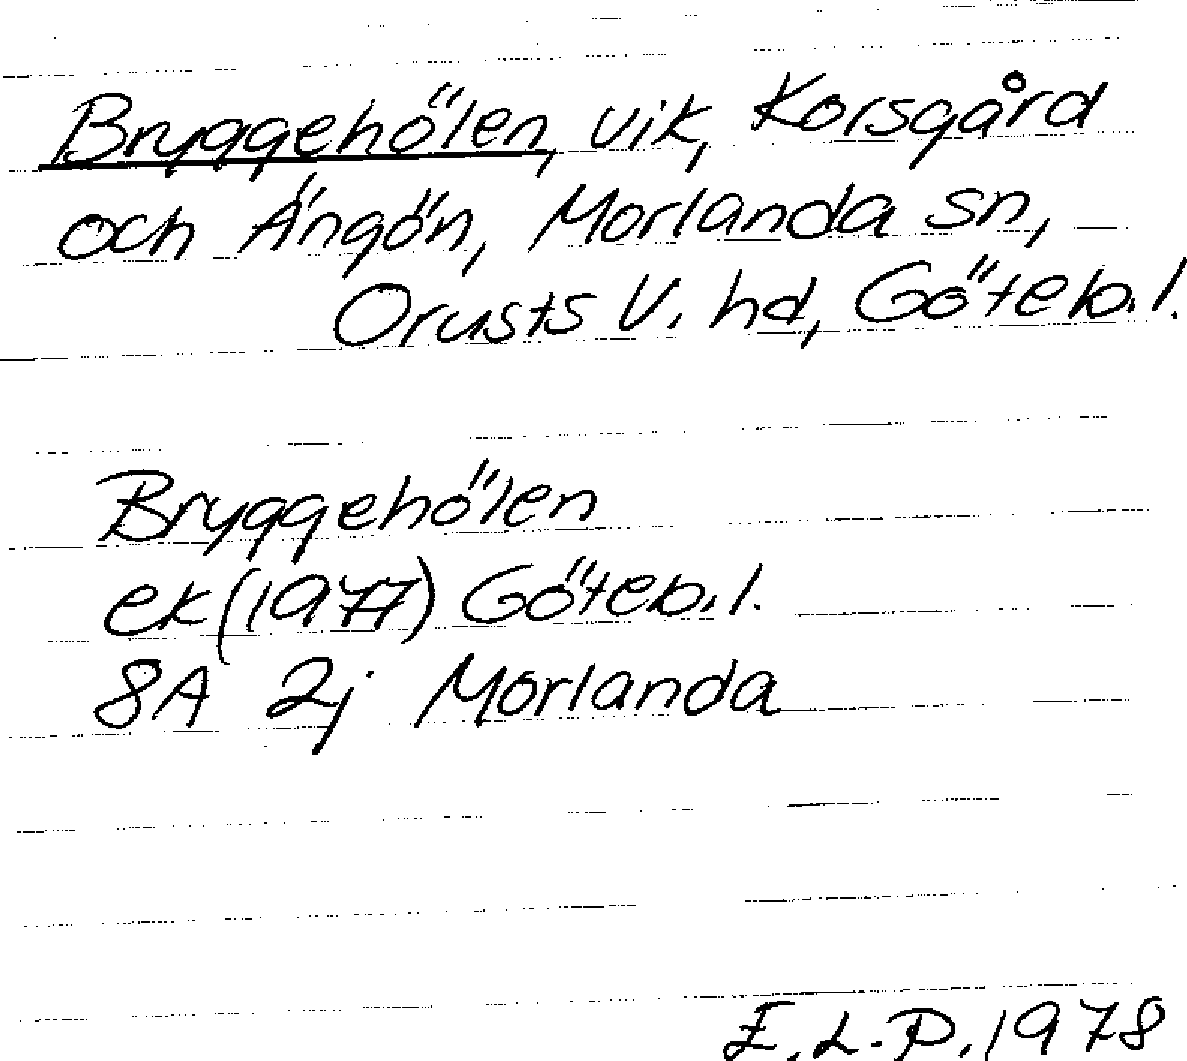 Bryggehölen, vik, Korsgård
och Ängön, Morlanda sn,
Orusts V. hd, Göteb.l.
Bryggehölen
ek (1977) Göteb.l.
8A 2j Morlanda
E.L.P. 1978